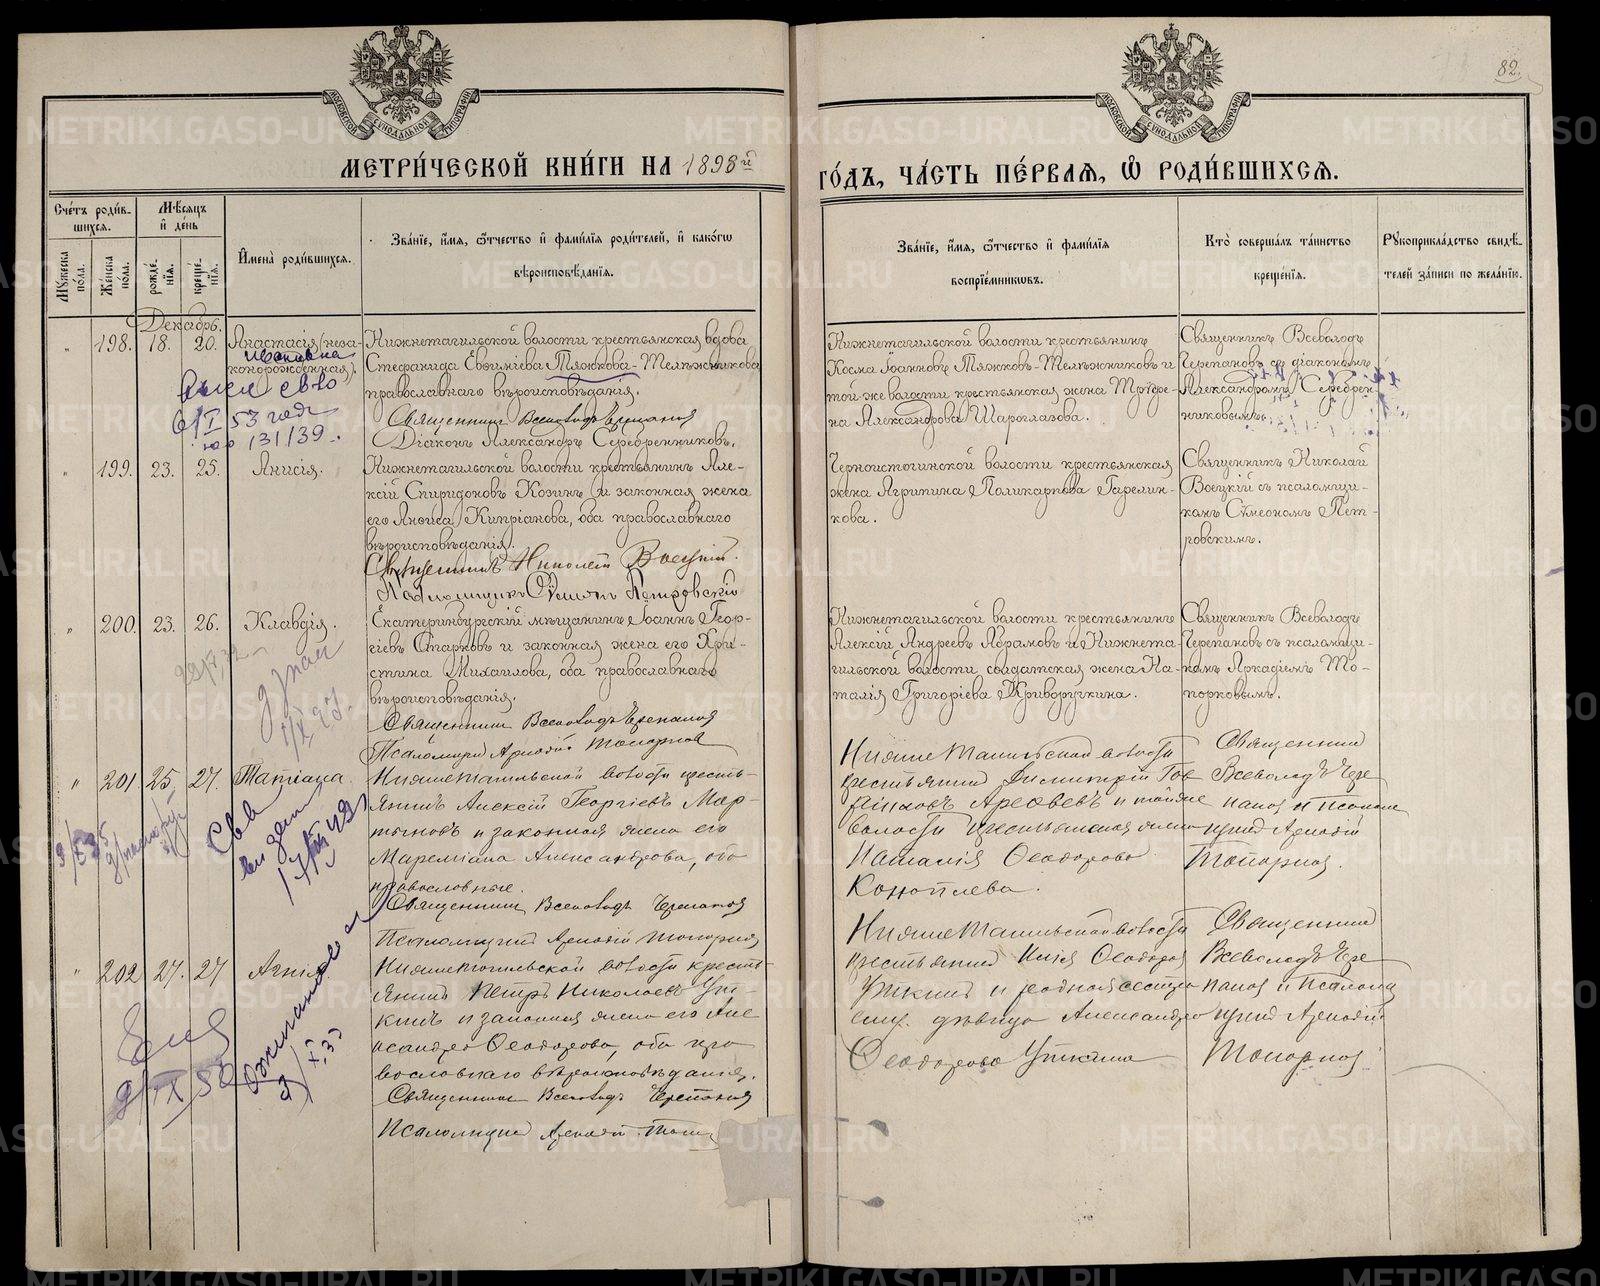 82.
МЕТРИ́ЧЕСКОЙ КНИ́ГИ НА 1898й
ГО́ДЪ, ЧА́СТЬ ПЕ́РВАЯ, Ѡ҆ РОДИ́ВШИХСЯ.
Сче́тъ роди́в-
шихся.
Мꙋ́жеска по́ла.
Же́нска по́ла.
Мѣ́сяцъ и҆ де́нь
рожде́нїя.
креще́нїя.
И҆мена̀ роди́вшихся.
Зва́нїе, и҆́мя, ѻ҆́тчество и҆ фами́лїя роди́телей, и҆ како́гѡ
вѣроисповѣ́данїя.
Зва́нїе, и҆́мя, ѻ҆́тчество и҆ фами́лїя
воспрїе́мникѡвъ.
Кто̀ соверша́лъ та́инство
креще́нїя.
Рꙋкоприкла́дство свидѣ́-
телей за́писи по жела́нїю.
Декабрь.
" 198. 18. 20. Анастасія (неза-
конорожденная).
Ивановна
выси св-во
6/I 53 года
юю 131139.
Нижнетагильской волости крестьянская вдова
Стефанида Евѳиміева Тяжкова-Телѣжникова
православнаго вѣроисповѣданія.
Священникъ Всеволодъ Черепановъ
Діаконъ Александръ Серебренниковъ.
Нижнетагильской волости крестьянинъ
Косма Іоанновъ Тяжковъ-Телѣжниковъ и
той же волости крестьянская жена Труфе-
на Александрова Шароглазова.
Священникъ Всеволодъ
Черепановъ съ діакономъ
Александромъ Серебрен-
никовымъ.
" 199. 23. 25. Анисія.
Нижнетагильской волости крестьянинъ Але-
ксій Спиридоновъ Козинъ и законная жена
его Анѳиса Кипріанова, оба православнаго
вѣроисповѣданія.
Священникъ Николай Воецкій.
Псаломщикъ Сѵмеонъ Петровскій
Черноистогинской волости крестьянская
жена Агрипина Поликарпова Гарелин-
кова.
Священникъ Николай
Воецкій съ псаломщи-
комъ Сѵмеономъ Пет-
ровскимъ.
" 200. 23. 26. Клавдія.
Екатеринбургскій мѣщанинъ Іоаннъ Геор-
гіевъ Старковъ и законная жена его Хри-
стина Михаилова, оба православнаго
вѣроисповѣданія.
Священникъ Всеволодъ Черепановъ
Псаломщикъ Аркадій Топорковъ
Нижнетагильской волости крестьянинъ
Алексій Андреевъ Абрамовъ и Нижнета-
гильской волости солдатская жена На-
талія Григоріева Криворучкина.
Священникъ Всеволодъ
Черепановъ съ псаломщи-
комъ Аркадіемъ То-
порковымъ.
" 201 25. 27. Татіана.
Нижнетагильской волости кресть-
янинъ Алексій Георгіевъ Мар-
тыновъ и законная жена его
Мареміана Александрова, оба
православные.
Священникъ Всеволодъ Черепановъ
Псаломщикъ Аркадій Топорковъ
Нижнетагильской волости
крестьянинъ Димитрій Гав
риловъ Арефьевъ и той же
волости крестьянская жена
Наталія Ѳеодорова
Коноплева.
Священникъ
Всеволодъ Чере
пановъ и псалом
щикъ Аркадій
Топорковъ.
" 202 27. 27 Агнія
Нижнетагильской волости кресть-
янинъ Петръ Николаевъ Ут-
кинъ и законная жена его Але
ксандра Ѳеодорова, оба пра
вославнаго вѣроисповѣданія.
Священникъ Всеволодъ Черепановъ
Псаломщикъ Аркадій Топор
Нижнетагильской волости
крестьянинъ Илія Ѳеодоровъ
Уткинъ и родная сестра
ему. дѣвица Александра
Ѳеодорова Уткина
Священникъ
Всеволодъ Чере
пановъ и Псалом
щикъ Аркадій
Топорковъ.
METRIKI.GASO-URAL.RU